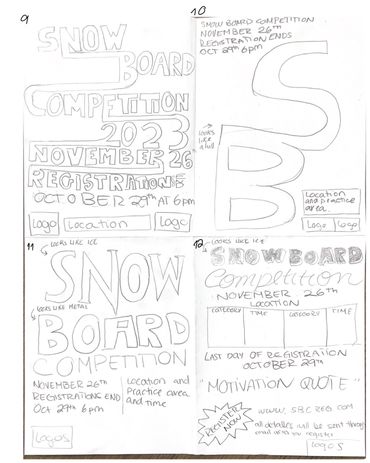 9
SNOW
BOARD
COMPETITION
2023
NOVEMBER 26
REGISTRATION ENDS
OCTOBER 29TH AT 6pm
Logo
Location
Logo
10
SNOW BOARD COMPETITION
NOVEMBER 26TH
REGISTRATION ENDS
OCT 29TH 6pm
S
B
looks
like
a hill
Location
and practice
area
Logo
Logo
11
LOOKS LIKE ICE
SNOW
LOOKS LIKE METAL
BOARD
COMPETITION
NOVEMBER 26TH
REGISTRATIONS END
Oct 29th 6pm
Location and
Practice area
and time
LOGOS
12
LOOKS LIKE ICE
SNOWBOARD
Competition
NOVEMBER 26TH
LOCATION
CATEGORY
TIME
CATEGORY
TIME
LAST DAY OF REGISTRATION
OCTOBER 29TH
"MOTIVATION QUOTE"
REGISTER
NOW
WWW.SBC.REG.COM
all detailes will be sent through
mail
register
Logos